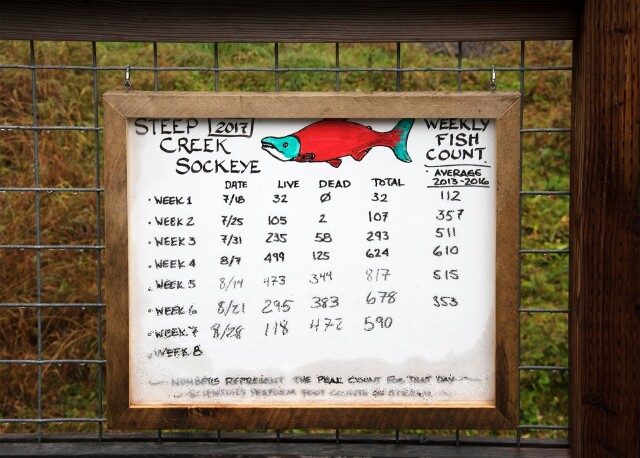 STEEP 2017
CREEK
SOCKEYE
WEEKLY
FISH
COUNT
• AVERAGE
2013-2016
DATE LIVE DEAD TOTAL
• WEEK 1 7/18 32 Ø 32 112
• WEEK 2 7/25 105 2 107 357
• WEEK 3 7/31 235 58 293 511
• WEEK 4 8/7 499 125 624 610
• WEEK 5 8/14 473 344 817 515
• WEEK 6 8/21 295 383 678 353
• WEEK 7 8/28 118 472 590
• WEEK 8
NUMBERS REPRESENT THE PEAK COUNT FOR THAT DAY
SCIENTISTS PERFORM FOOT COUNTS ON